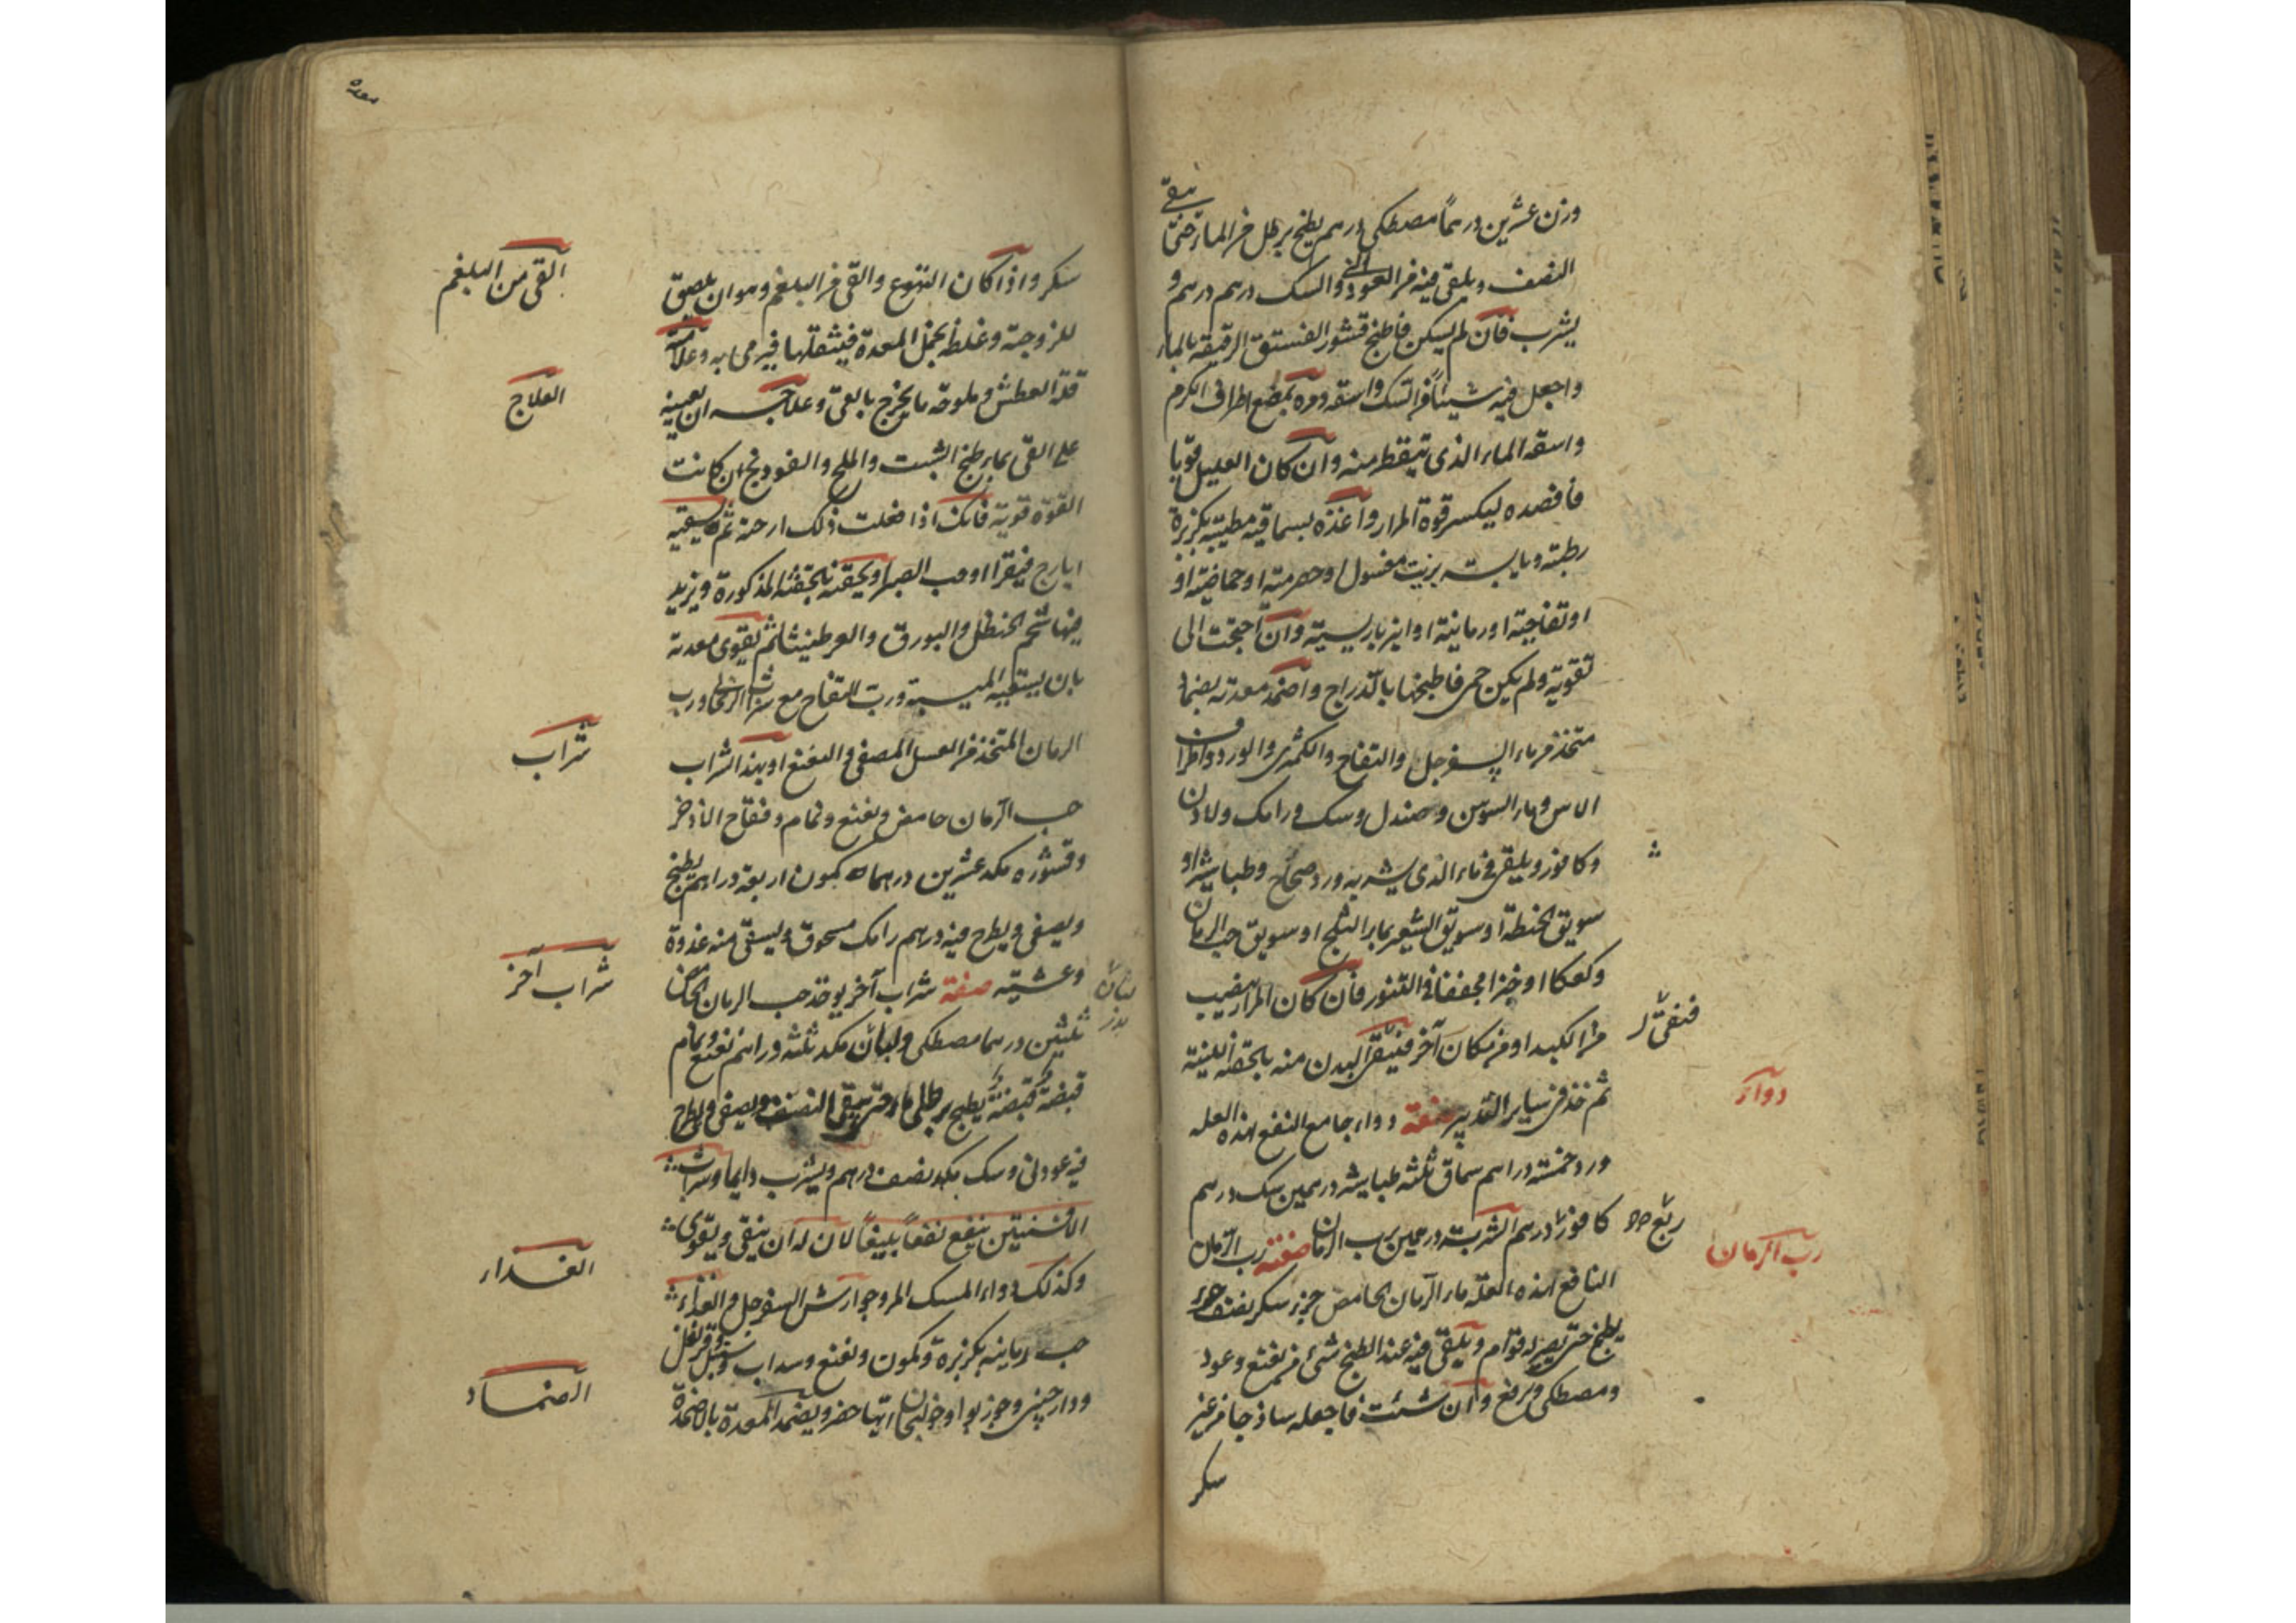 وزن عشرين درهماً مصطكى درهم يطبخ برطل من الماء حتى يبقى
النصف ويلقى فيه من العود الني والسك درهم درهم و
يشرب فان لم يسكن فاطبخ قشور الفستق الرقيقة بالماء
واجعل فيه شيئاً من السك واسقه ومره بمضغ اطراف الكرم
واسقه الماء الذى يتقطر منه وان كان العليل قويا
فافصده ليكسر قوة المرار واغذه بسماقية مطيبة بكزبرة
رطبة ويابسة بزيت مغسول او حصرمية او حماضية او
او تفاحية او رمانية او انبرباريسية وان احتجت الى
تقوية ولم يكن حمى فاطبخها بالدراج واضمد معدته بضماد
متخذ من ماء السفرجل والتفاح والكمثرى والورد واطراف
الاس وماء السوسن وصندل وسك ورامك ولادن
وكافور ويلقى فى ماء الذى يشربه ورد صحاح وطباشير او
سويق الحنطة او سويق الشعير بماء الثلج او سويق حب الرمان
وكعكا او خبزا مجففا فى التنور فان كان المرار ينصب
من الكبد او من مكان آخر فينقى البدن منه بالحقنة اللينة
فنقى
ثم خذ فى ساير التدبير صفة دواء جامع النفع لهذه العله
دواء
ورد خمسة دراهم سماق ثلثه طباشير درهمين سك درهم
كافور درهم الشربة درهمين برب الرمان صفة رب الرمان
ربع
رب الرمان
النافع لهذه العلة ماء الرمان الحامض جزء سكر نصف جزء
يطبخ حتى يصير له قوام ويلقى فيه عند الطبخ شئ من نعنع وعود
ومصطكى ويرفع وان شئت فاجعله ساذجا من غير
سكر
سكر واذا كان التهوع والقى من البلغم وهو ان يلصق
القى من البلغم
للزوجته وغلظه بخمل المعدة فيثقلها فيرمى به وعلامته
قلة العطش وملوحة ما يخرج بالقى وعلاجه ان تعينه
العلاج
على القى بماء طبخ الشبت والملح والفودنج ان كانت
القوة قوية فانك اذا فعلت ذلك ارحته ثم يسقيه
ايارج فيقرا او حب الصبر ويحقنه بالحقنة المذكورة ويزيد
فيها شحم الحنظل والبورق والعرطنيثا ثم يقوى معدته
بان يسقيه الميبة ورب التفاح مع شراب الريحانى ورب
الرمان المتخذ من العسل المصفى والنعنع او بهذا الشراب
شراب
حب الرمان حامض ونعنع ونمام وفقاح الاذخر
وقشوره مكد عشرين درهما كمون اربعة دراهم يطبخ
ويصفى ويطرح فيه درهم رامك مسحوق ويسقى منه غدوة
وعشية صفة شراب آخر يوخذ حب الرمان الحامض
شراب آخر
ثلثين درهما مصطكى ولبان مكد ثلثه دراهم نعنع ونمام
قبضة قبضة يطبخ برطلى ماء حتى يبقى النصف ويصفى ويطرح
فيه عود نى وسك مكد نصف درهم ويشرب دايما وشراب
الافسنتين ينفع نفعاً بليغاً لان له ان ينقى ويقوى
وكذلك دواء المسك المر وجوارش السفرجل والغذاء
الغذاء
حب رمانية بكزبرة وكمون ونعنع وسداب وسنبل وقرنفل
ودارچينى وجوزبوا وخولنجان ايها حضر ويضمد المعدة بالاضمدة
الضماد